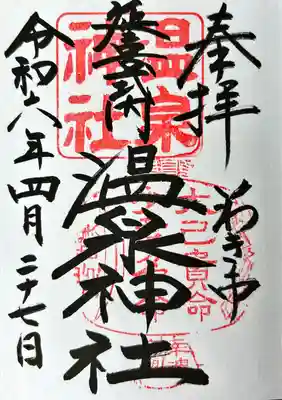 奉拝
いわき市
温泉神社
令和六年四月二十七日
温泉
神社
大己貴命